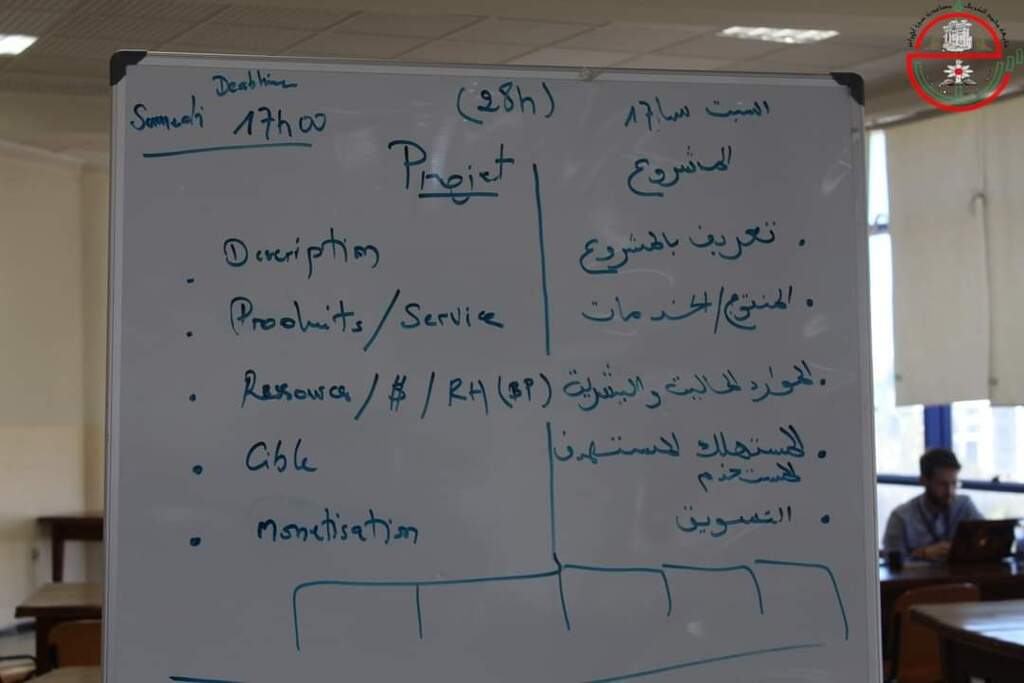 Deadline
Samedi 17h00
(28h)
السبت سا 17
Projet
المشروع
Description
تعريف بالمشروع
Produits/Service
المنتوج/الخدمات
Ressources/$/RH (BP)
الموارد المالية والبشرية
Cible
المستهلك المستهدف
المستخدم
Monetisation
التسويق